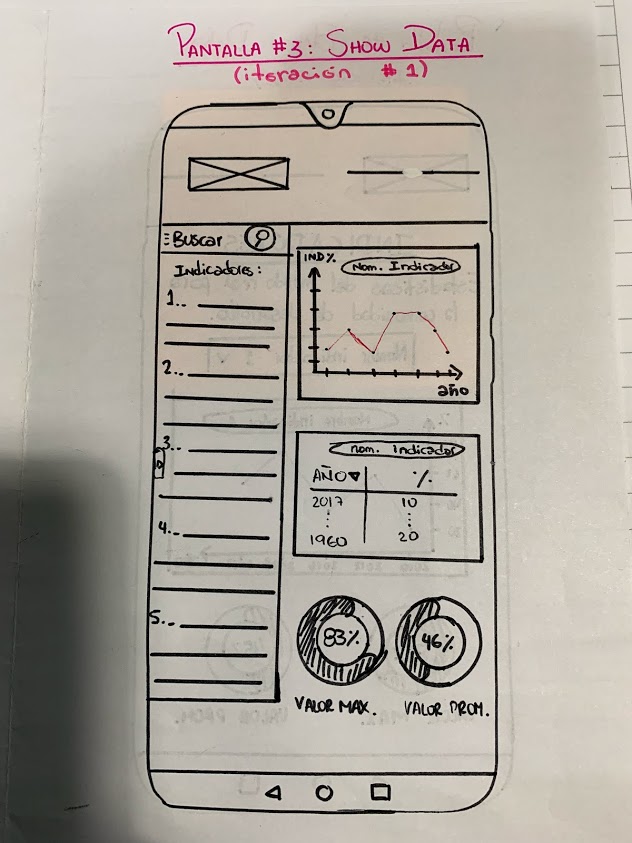 PANTALLA #3: SHOW DATA
(iteración #1)
Buscar
Indicadores:
1..
2..
3..
4..
5..
IND%
Nom. Indicador
año
nom. Indicador
AÑO %
2017 10
1960 20
83% 46%
VALOR MAX. VALOR PROM.